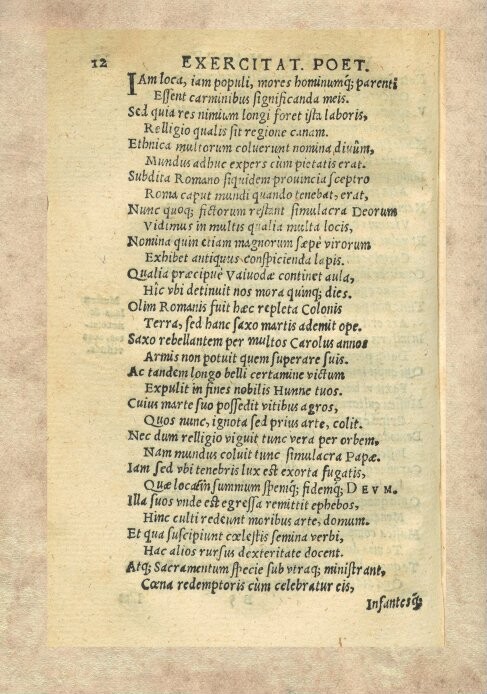 12 EXERCITAT. POET.
IAm loca, iam populi, mores hominumq; parenti
Essent carminibus significanda meis.
Sed quia res nimium longi foret ista laboris,
Relligio qualis sit regione canam.
Ethnica multorum coluerunt nomina divûm,
Mundus adhuc expers cùm pietatis erat.
Subdita Romano siquidem provincia sceptro
Roma caput mundi quando tenebat, erat,
Nunc quoq; fictorum restant simulacra Deorum
Vidimus in multis qualia multa locis,
Nomina quin etiam magnorum sæpè virorum
Exhibet antiquus conspicienda lapis.
Qualia præcipuè Vaivodæ continet aula,
Hîc vbi detinuit nos mora quinq; dies.
Olim Romanis fuit hæc repleta Colonis
Terra, sed hanc saxo martis ademit ope.
Saxo rebellantem per multos Carolus annos
Armis non potuit quem superare suis.
Ac tandem longo belli certamine victum
Expulit in fines nobilis Hunne tuos.
Cuius marte suo possedit vitibus agros,
Quos nunc, ignota sed prius arte, colit.
Nec dum relligio viguit tunc vera per orbem,
Nam mundus coluit tunc simulacra Papæ.
Iam sed vbi tenebris lux est exorta fugatis,
Quæ locat in summum spemq; fidemq; DEVM.
Illa suos vnde est egressa remittit ephebos,
Hinc culti redeunt moribus arte, domum.
Et qua suscipiunt cœlestis semina verbi,
Hac alios rursus dexteritate docent.
Atq; Sacramentum specie sub vtraq; ministrant,
Cœna redemptoris cùm celebratur eis,
Infantesq;